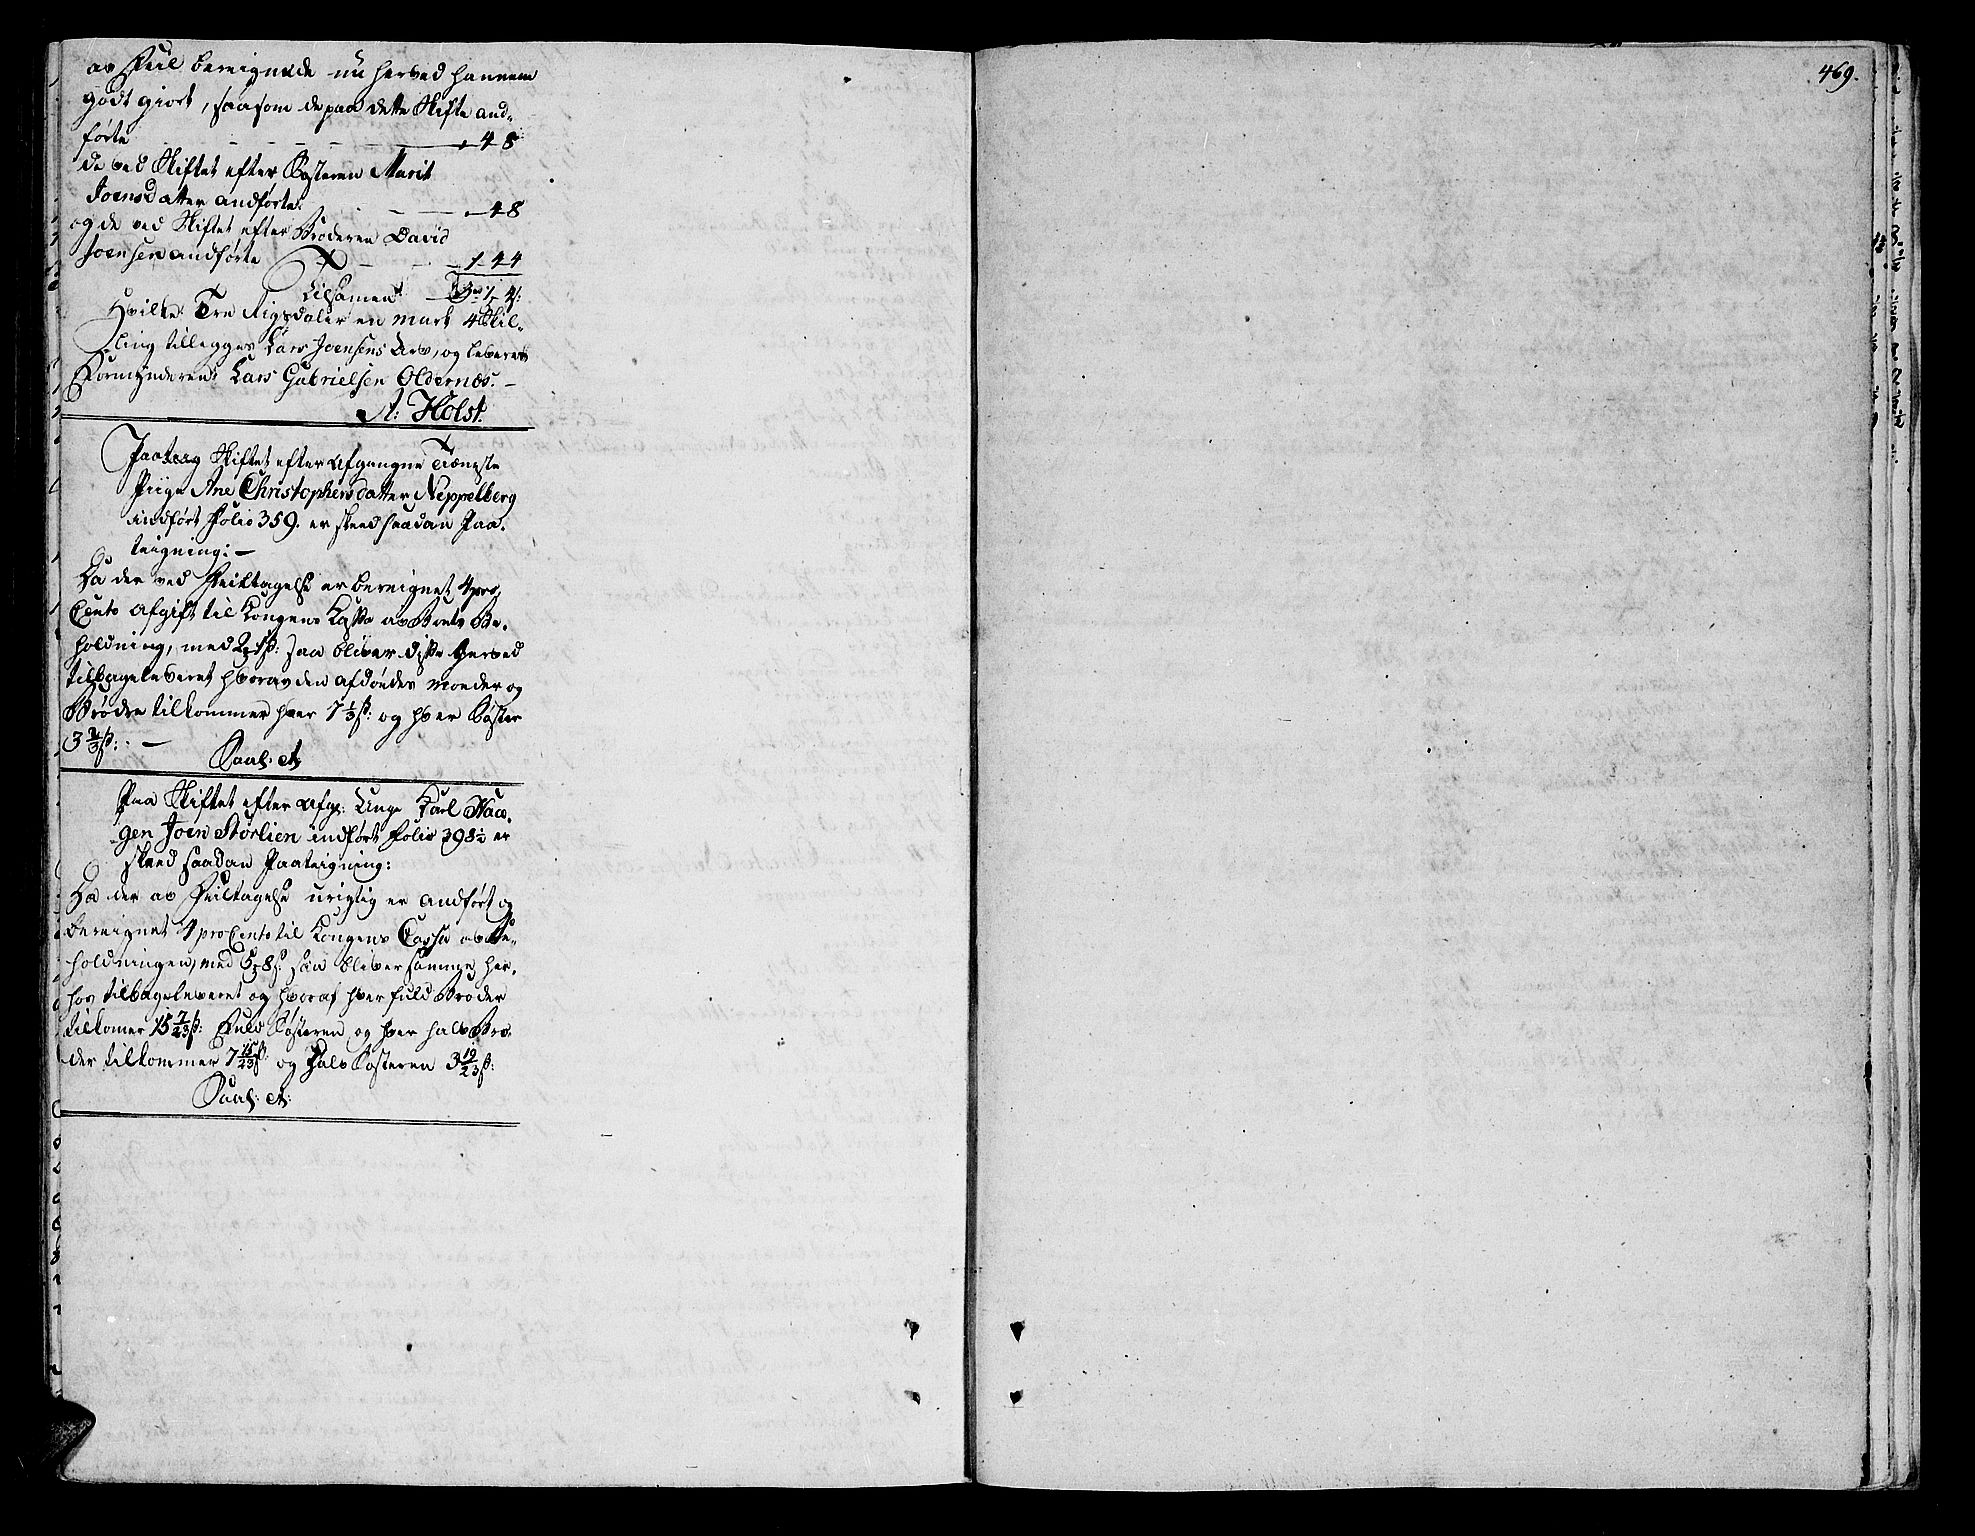 av Feil beregnede nu herved hannem
godt giort, saasom de paa dette Skifte and-
førte - - - - - - 48
de ved Skiftet efter Søsteren Marit
Joensdatter andførte - - - 48
og de ved Skiftet efter Broderen David
Joensen andførte - - - 1-44
Tilsamen 3 rd 1 4 s:
Hvilke Tre Rigsdaler en mark 4 Skil-
ling tillegges Lars Joensens Arv, og leveres
Formynderen Lars Gabrielsen Oldernæs. -
A: Holst.
Paa Skiftet efter afgangne Tieneste
Piige Ane Christophersdatter Neppelberg
indført Folio 359. er skeed saadan Paa-
teigning: -
Da der ved Feiltagelse er bereignet 4 pro
Cento Afgift til Kongens Kassa av Boets Be-
holdning, med 2 s: saa bliver disse herved
tilbageleveret hvorav den afdøedes Moeder og
Brødre tilkommer hver 7 1/3 s: og hver Søster
3 2/3 s: -
Saal: A:
Paa Skiftet efter Afg: Unge Karl Haa-
gen Joen Storlien indført Folio 398 1/2 er
skeed saadan Paateigning:
Da der av Feiltagelse urigtig er andført og
bereignet 4 pro Cento til Kongens Cassa av Be-
holdningen, med 8 s: saa bliver samme her-
hos tilbageleveret og hvoraf hver fuld Broder
tilkomer 15 7/23 s: Fuld Søsteren og hver halv Bro-
der tilkommer 7 15/23 s: og Halv Søsteren 3 19/23 s:
Saal: A:
469.